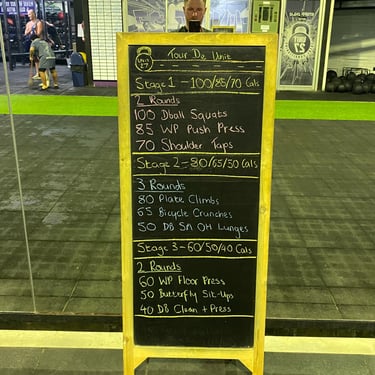 Tour De Unit
UNIT 27
Stage 1 - 100/85/70 Cals
2 Rounds
100 Dball Squats
85 WP Push Press
70 Shoulder Taps
Stage 2 - 80/65/50 Cals
3 Rounds
80 Plate Climbs
65 Bicycle Crunches
50 DB SA OH Lunges
Stage 3 - 60/50/40 Cals
2 Rounds
60 WP Floor Press
50 Butterfly Sit-Ups
40 DB Clean + Press